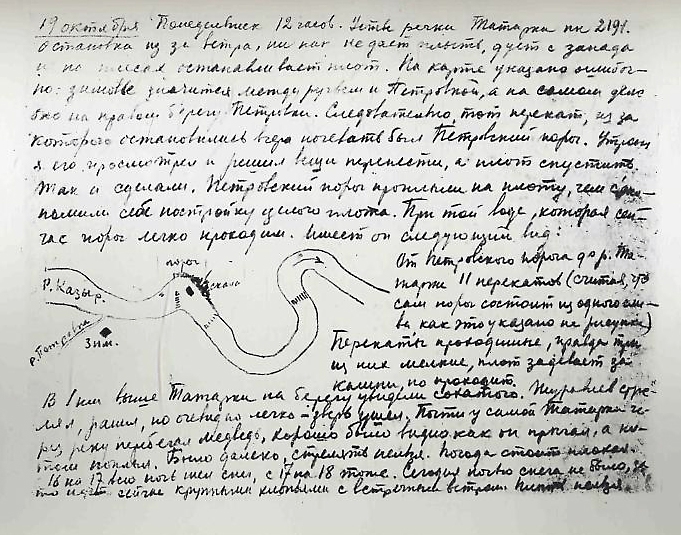 19 октября Понедельник 12 часов. Устье речки Татарки пк 2191.
Остановка из за ветра, ни как не дает плыть, дует с запада
и на плесах останавливает плот. На карте указано ошибоч-
но: зимовье значится между ручьем и Петровкой, а на самом деле
оно на правом берегу Петровки. Следовательно, тот перекат, из за
которого остановились вчера ночевать был Петровский порог. Утром
я его просмотрел и решил вещи перенести, а плот спустить.
Так и сделали. Петровский порог проплыли на плоту, чем
себе постройку целого плота. При той воде, которая сей-
час порог легко проходим. Имеет он следующий вид:
порог
скала
Р. Казыр.
р. Петровка
Зим.
От Петровского порога до р. Та-
тарки 11 перекатов (считая, что
сам порог состоит из одного сли-
ва как это указано на рисунке)
Перекаты проходимые, правда три
из них мелкие, плот задевает за
камни, но проходит.
В 1 км выше Татарки на берегу увидели сохатого. Журавлев стре-
лял, ранил, но очевидно легко - зверь ушел. Почти у самой Татарки че-
рез реку перебегал медведь, хорошо было видно как он прыгал, а по-
том поплыл. Было далеко, стрелять нельзя. Погода стоит плохая
16 на 17 всю ночь шел снег, с 17 на 18 тоже. Сегодня ночью снега не было, за
то идет сейчас крупными хлопьями с встречным ветром. Плыть нельзя